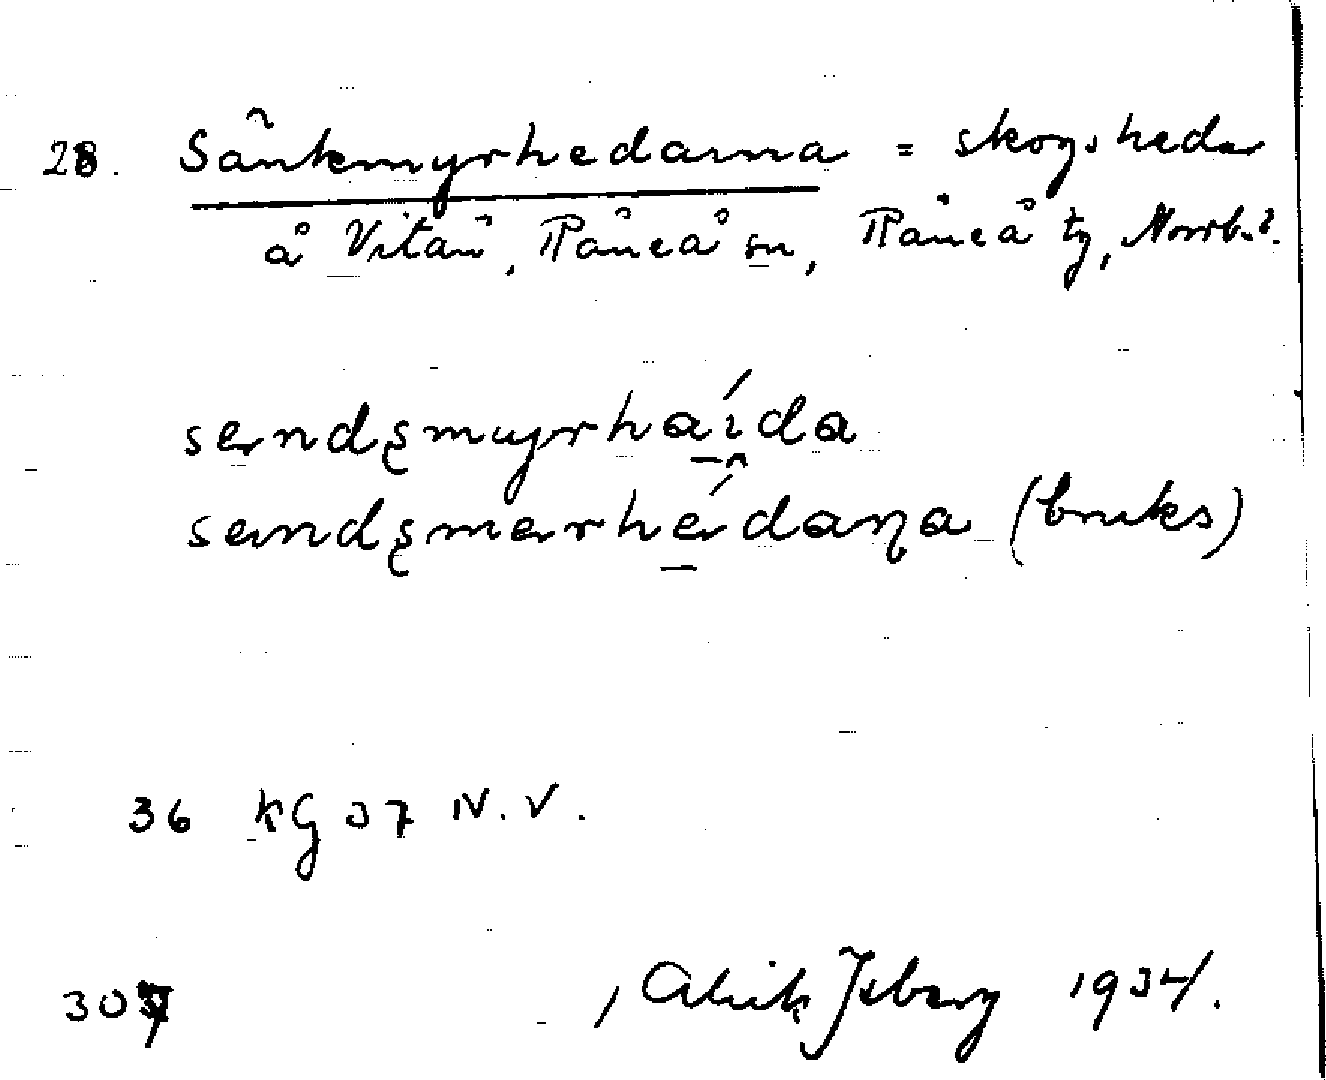 28. Sånkmyrhedarna = skogshedar
å Vitån, Råneå sn, Råneå tg, Norrb. l.
sendęmuyrhaída
sendęmerhédaṇa (bruks)
36 KG 37 N.V.
307 Alrik Isberg 1934.